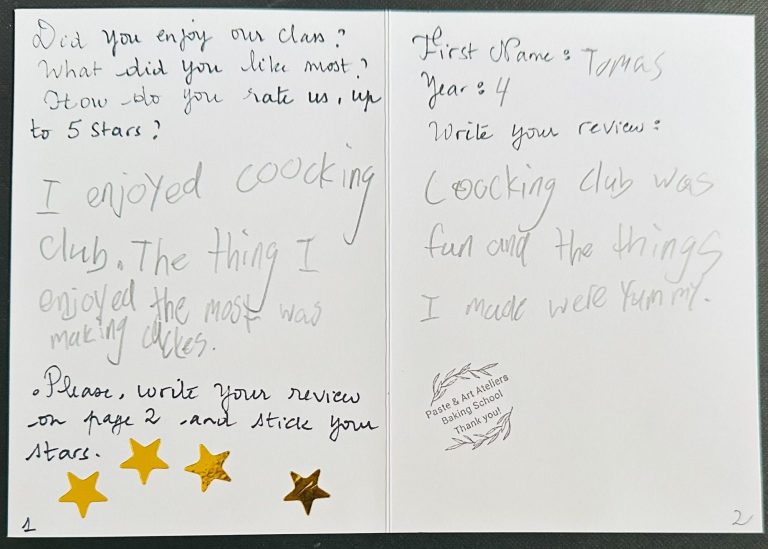 Did you enjoy our class?
What did you like most?
How do you rate us, up
to 5 stars?
I enjoyed coocking
club. The thing I
enjoyed the most was
making
.Please, write your review
on page 2 and stick your
stars.
1
First Name: Tomas
Year: 4
Write your review:
Coocking club was
fun and the things
I made were Yummy.
Paste & Art Ateliers
Baking School
Thank you!
2